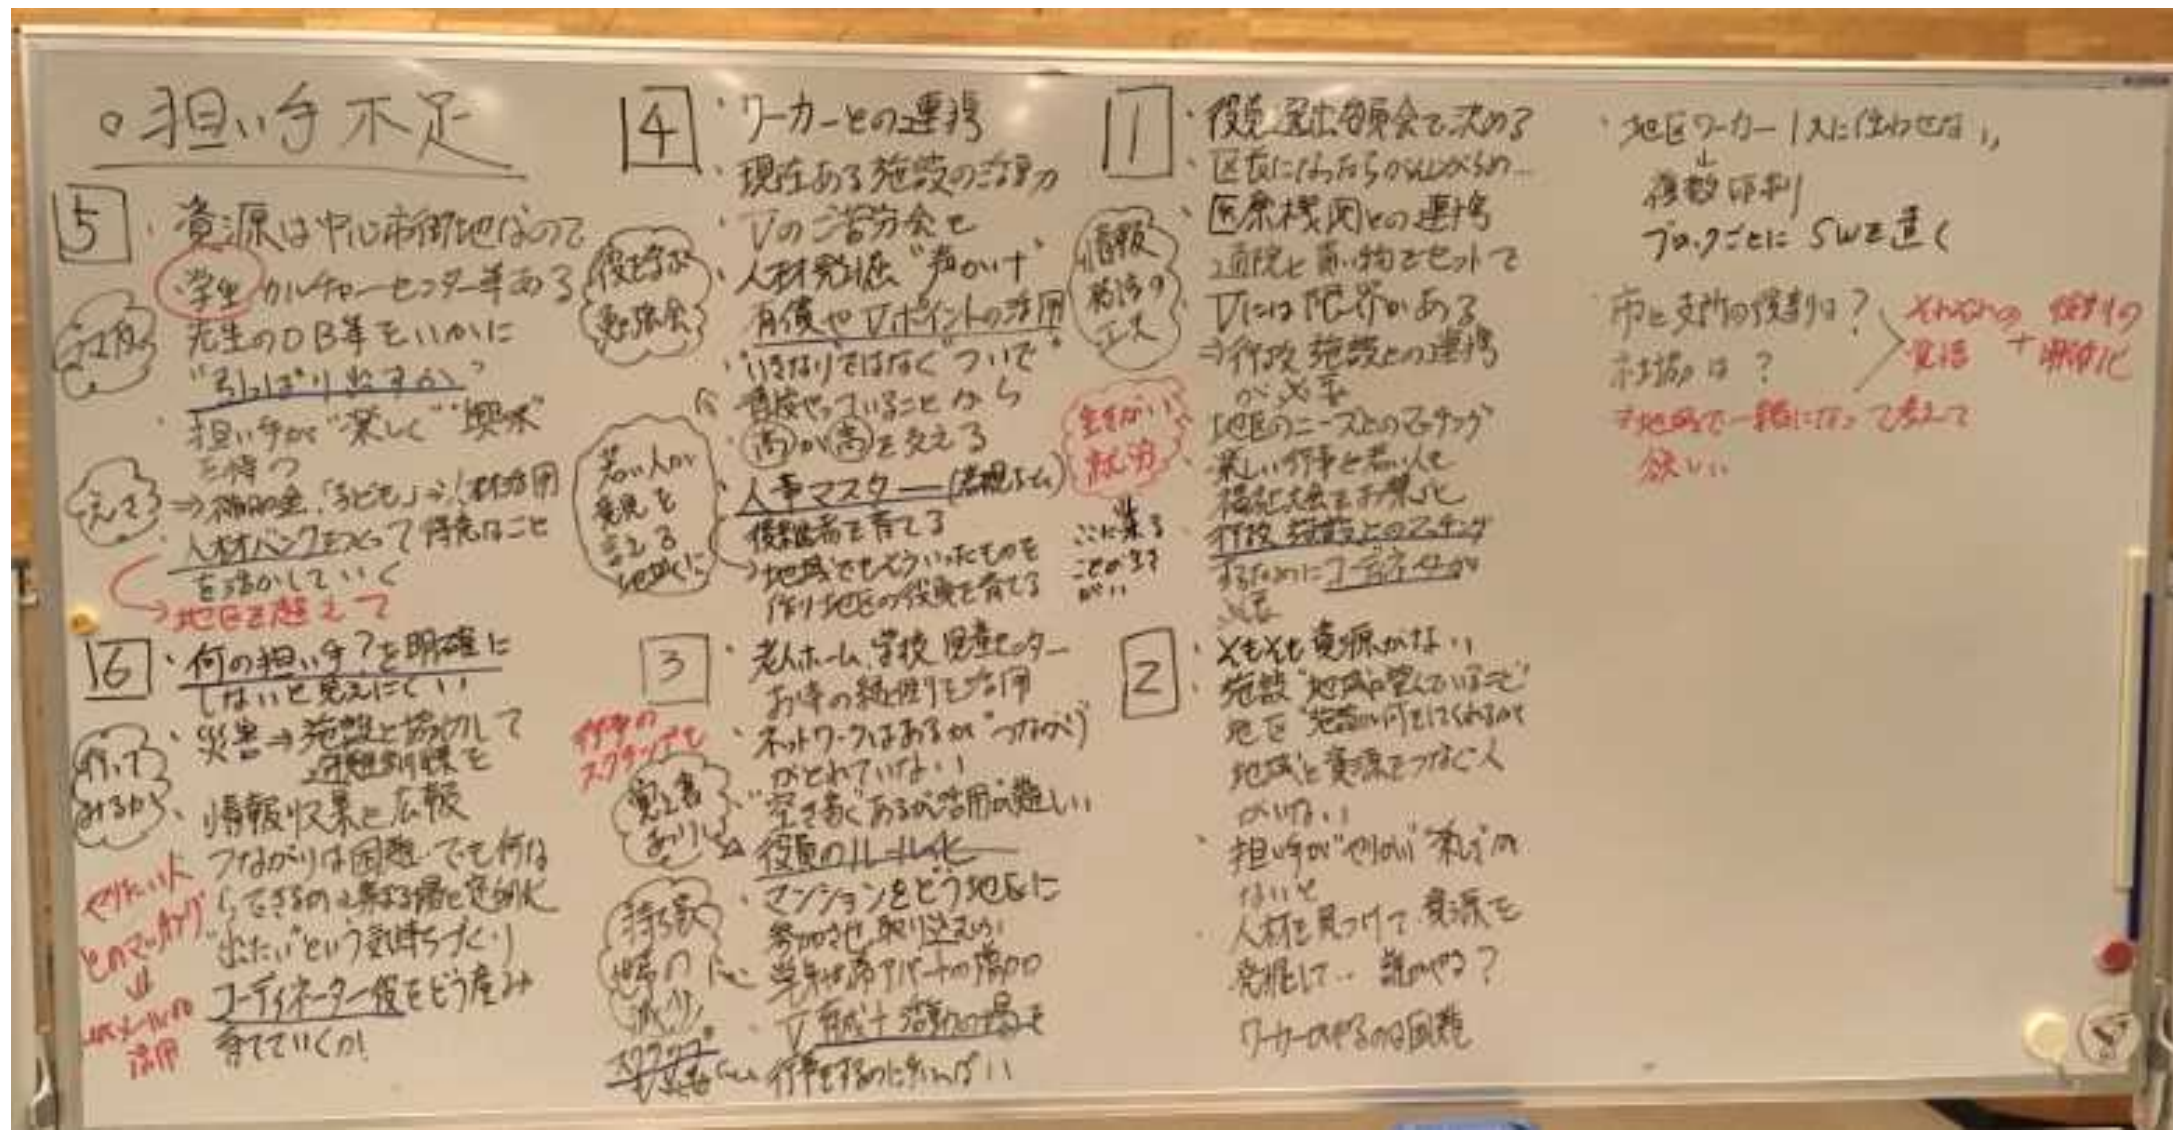 。担い手不足
5
・資源は中心市街地なので
・学生 カルチャーセンター等ある
先生のOB等をいかに
"引っぱり出すか"
・担い手が"楽しく""興味"
を持つ
⇒ 「子ども」⇒人材活用
人材バンクをつくって得意なこと
を活かしていく
→地区を超えて
6
・何の担い手?を明確に
しないと見えにくい
・災害⇒施設と協力して
避難訓練を
・情報収集と広報
つながりは困難・でも何な
らできるの 集まる場を定例化
"出たい"という気持ちづくり
コーディネーター役をどう産み
育てていくか!
やりたい人
とのマッチング
⇓
活用
4
・ワーカーとの連携
・現在ある施設の活用
・Vのご苦労会を
・人材発掘"声かけ"
有償やVポイントの活用
・"いきなりではなく"ついで"
普段やっていることから
・高が高を支える
・人事マスター
後継者を育てる
→地域でもそういったものを
作り地区の役員を育てる
役をなが
勉強会
若い人が
意見を
言える
地域に
3
・老人ホーム、学校、児童センター
お寺の経借りを活用
・ネットワークはあるが"つながり"
がとれていない
・"空き家"あるが活用が難しい
役員のルール化
・マンションをどう地区に
参加させ取り込むか
学生 アパートの増加
・V育成+活動の場を
行事をするのに精いっぱい
行事の
スクラップも
覚え書
あり
持ち家
世帯の
減少
1
・役員選出委員会で決める
・区長になったら
・医療機関との連携
通院と買い物をセットで
・Vには限界がある
⇒行政 施設との連携
が必要
・地区のニーズとのマッチング
・楽しい行事を若い人も
福祉大会をお祭りに
・行政 施設とのマッチング
するためにコーディネーターが
必要
情報
生きがい
就労
ここに来る
ことが生き
がい
2
・そもそも資源がない
・施設"地域が望んでいること"
地区"施設が何をしてくれるか"
地域と資源をつなぐ人
がいない
・担い手が"やりがい""楽しさ"が
ないと
・人材を見つけて資源を
発掘して‥誰がやる?
ワーカーがやるのは困難
・地区ワーカー1人に任わせない
↓
複数
ブロックごとにSWを置く
・市と支所の役割は?
社協は?
それぞれの
役割の
+
明確化
⇒地域で一緒になって考えて
欲しい